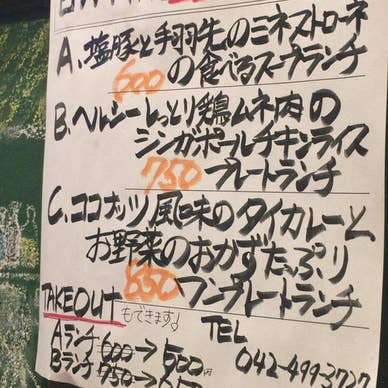 A、塩豚と手羽先のミネストローネ
600 の食べるスープランチ
B、ヘルシーしっとり鶏ムネ肉の
シンガポールチキンライス
750 プレートランチ
C、ココナッツ風味のタイカレーと
お野菜のおかずたっぷり
650 ワンプレートランチ
TAKEOUT もできます♪
TEL
042-499-3727
Aランチ 600→500円
Bランチ 750→